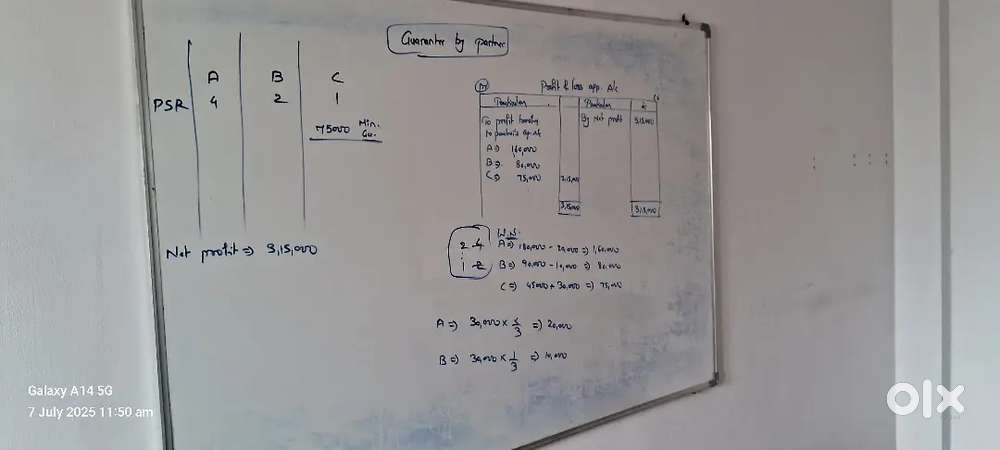 Guarantee by partner
A B C
PSR 4 2 1
75000 Min. Gu.
Net profit => 3,15,000
Dr Profit & loss app. A/c Cr
Particular Particular
To profit transfer By Net profit 3,15,000
to partner's cap. a/c
A => 1,60,000
B => 80,000
C => 75,000 3,15,000
3,15,000 3,15,000
W.N.
2 4 A => 1,80,000 - 20,000 => 1,60,000
1 2 B => 90,000 - 10,000 => 80,000
C => 45000 + 30,000 => 75,000
A => 30,000 × 2/3 => 20,000
B => 30,000 × 1/3 => 10,000
Galaxy A14 5G
7 July 2025 11:50 am
olx